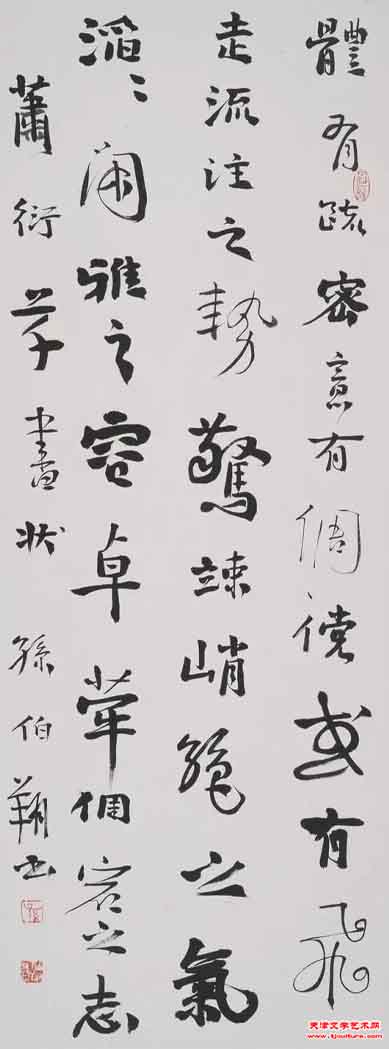 體有疏密意有倜儻或有飛
走流注之勢驚竦峭絕之氣
滔〻閑雅之容卓犖倜宕之志
蕭衍草書狀 孫伯翔書
天津文学艺术网
www.tjculture.com